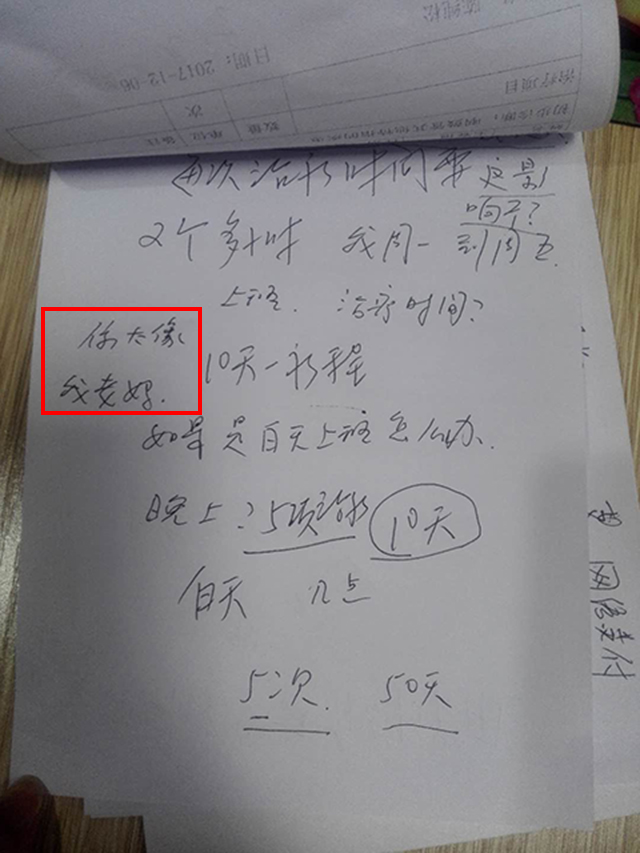 日期：2017-12-06
治疗项目
次
数量
单位
再次治疗时间要
这影
响不？
2个多小时 我周一到周五
上班. 治疗时间？
你太像
我老妈.
10天一疗程
如果是白天上班怎么办.
晚上？5项治疗 10天
白天 几点
5次. 50天
网
支付